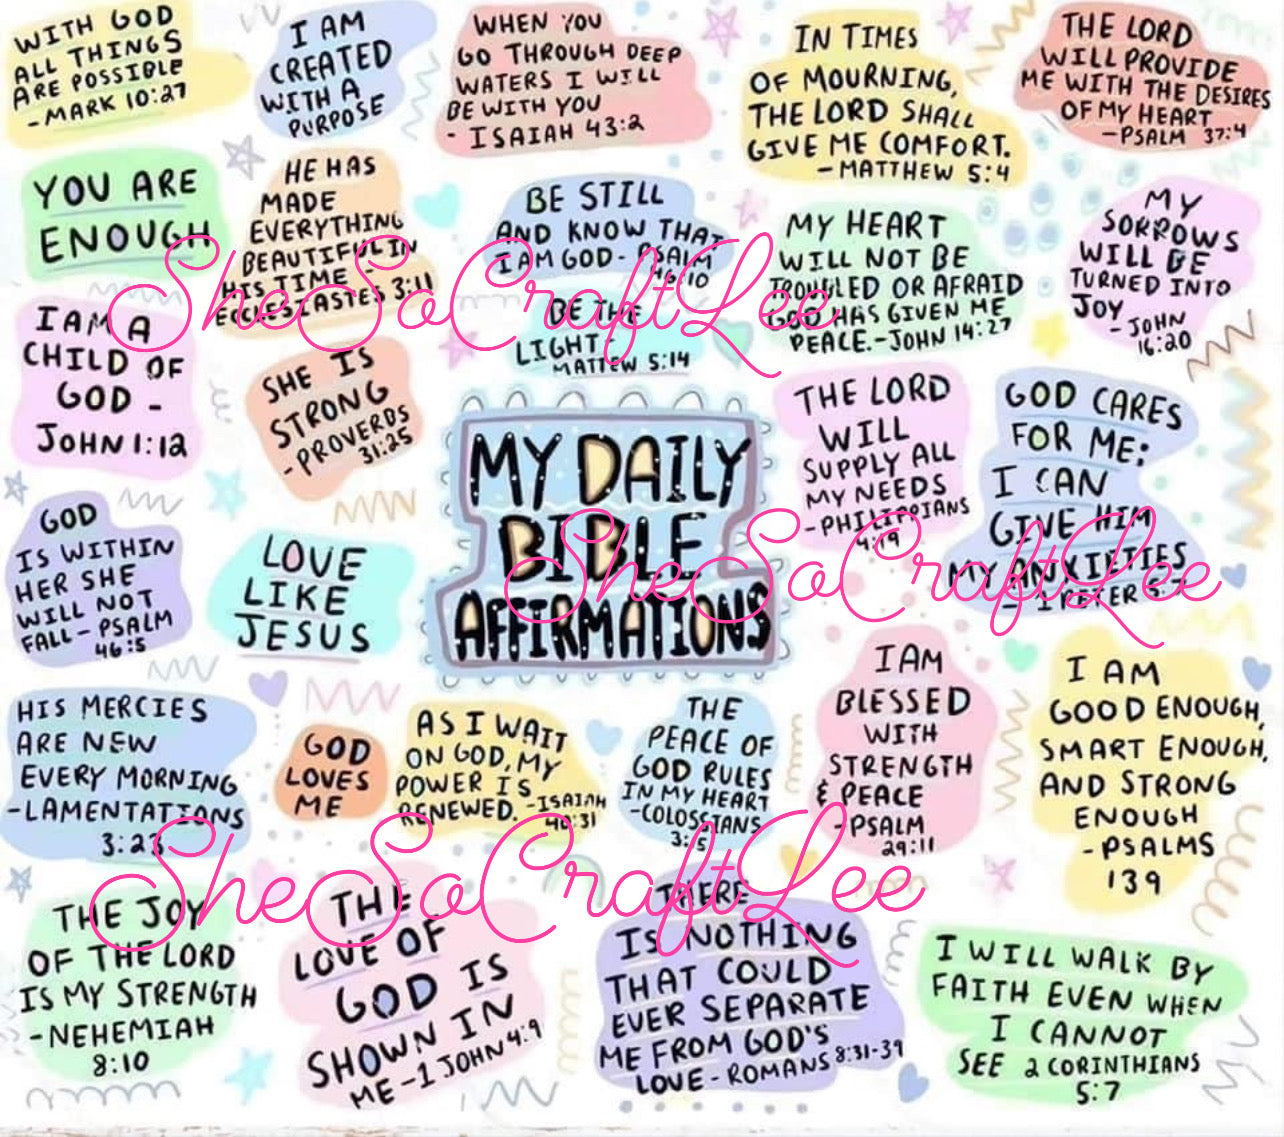 WITH GOD
ALL THINGS
ARE POSSIBLE
-MARK 10:27
I AM
CREATED
WITH A
PURPOSE
WHEN YOU
GO THROUGH DEEP
WATERS I WILL
BE WITH YOU
- ISAIAH 43:2
IN TIMES
OF MOURNING,
THE LORD SHALL
GIVE ME COMFORT.
- MATTHEW 5:4
THE LORD
WILL PROVIDE
ME WITH THE DESIRES
OF MY HEART
-PSALM 37:4
YOU ARE
ENOUGH
HE HAS
MADE
EVERYTHING
BEAUTIFUL IN
HIS TIME -
ECCLESIASTES 3:11
BE STILL
AND KNOW THAT
I AM GOD - PSALM
46:10
MY HEART
WILL NOT BE
TROUBLED OR AFRAID
GOD HAS GIVEN ME
PEACE.-JOHN 14:27
MY
SORROWS
WILL BE
TURNED INTO
JOY
- JOHN
16:20
SheSoCraftLee
BE THE
LIGHT-
MATTEW 5:14
I AM A
CHILD OF
GOD -
JOHN 1:12
SHE IS
STRONG
-PROVERDS
31:25
MY DAILY
BIBLE
AFFIRMATIONS
THE LORD
WILL
SUPPLY ALL
MY NEEDS
-PHILIPPIANS
4:19
GOD CARES
FOR ME:
I CAN
GIVE HIM
MY ANXIETIES
- 1 PETER 5:
SheSoCraftLee
GOD
IS WITHIN
HER SHE
WILL NOT
FALL - PSALM
46:5
LOVE
LIKE
JESUS
HIS MERCIES
ARE NEW
EVERY MORNING
-LAMENTATIONS
3:23
GOD
LOVES
ME
AS I WAIT
ON GOD, MY
POWER IS
RENEWED. -ISAIAH
40:31
THE
PEACE OF
GOD RULES
IN MY HEART
-COLOSSIANS
3:15
I AM
BLESSED
WITH
STRENGTH
& PEACE
-PSALM
29:11
I AM
GOOD ENOUGH,
SMART ENOUGH,
AND STRONG
ENOUGH
- PSALMS
139
SheSoCraftLee
THE JOY
OF THE LORD
IS MY STRENGTH
-NEHEMIAH
8:10
THE
LOVE OF
GOD IS
SHOWN IN
ME -1 JOHN 4:9
THERE
IS NOTHING
THAT COULD
EVER SEPARATE
ME FROM GOD'S
LOVE - ROMANS 8:31-39
I WILL WALK BY
FAITH EVEN WHEN
I CANNOT
SEE 2 CORINTHIANS
5:7